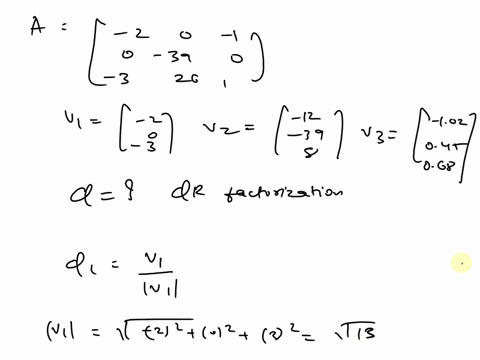 A = [ -2 0 -1
0 -39 0
-3 26 1 ]
V1 = [ -2 0 -3 ] V2 = [ -12 -39 8 ] V3 = [ -1.02 0.45 0.68 ]
Q = ? QR factorization
Q1 = V1 / |V1|
|V1| = √(-2)² + (0)² + (3)² = √13